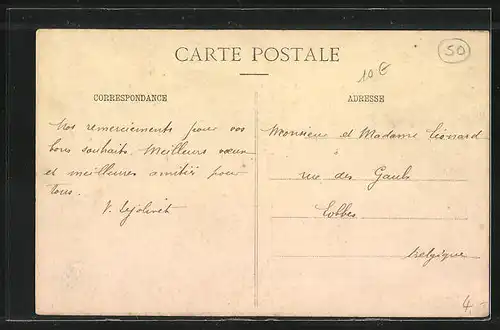 CARTE POSTALE
50
10€
CORRESPONDANCE
ADRESSE
Nos remerciements pour vos
bons souhaits. Meilleurs vœux
et meilleures amitiés pour
tous.
V.
Monsieur et Madame Léonard
rue des Gaulx
Lobbes
Belgique
4